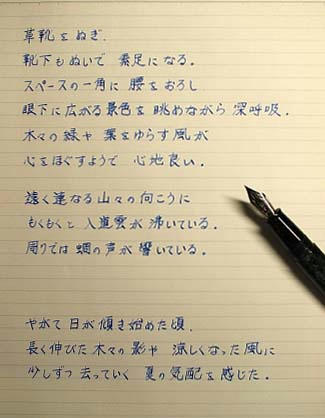 革靴をぬぎ、
靴下もぬいで 素足になる。
スペースの一角に 腰をおろし
眼下に広がる景色を 眺めながら 深呼吸。
木々の緑や 葉をゆらす風が
心をほぐすようで 心地良い。
遠く連なる山々の向こうに
もくもくと 入道雲が 沸いている。
周りでは 蜩の声が 響いている。
やがて 日が 傾き始めた頃、
長く伸びた 木々の影や 涼しくなった 風に
少しずつ 去っていく 夏の気配を 感じた。